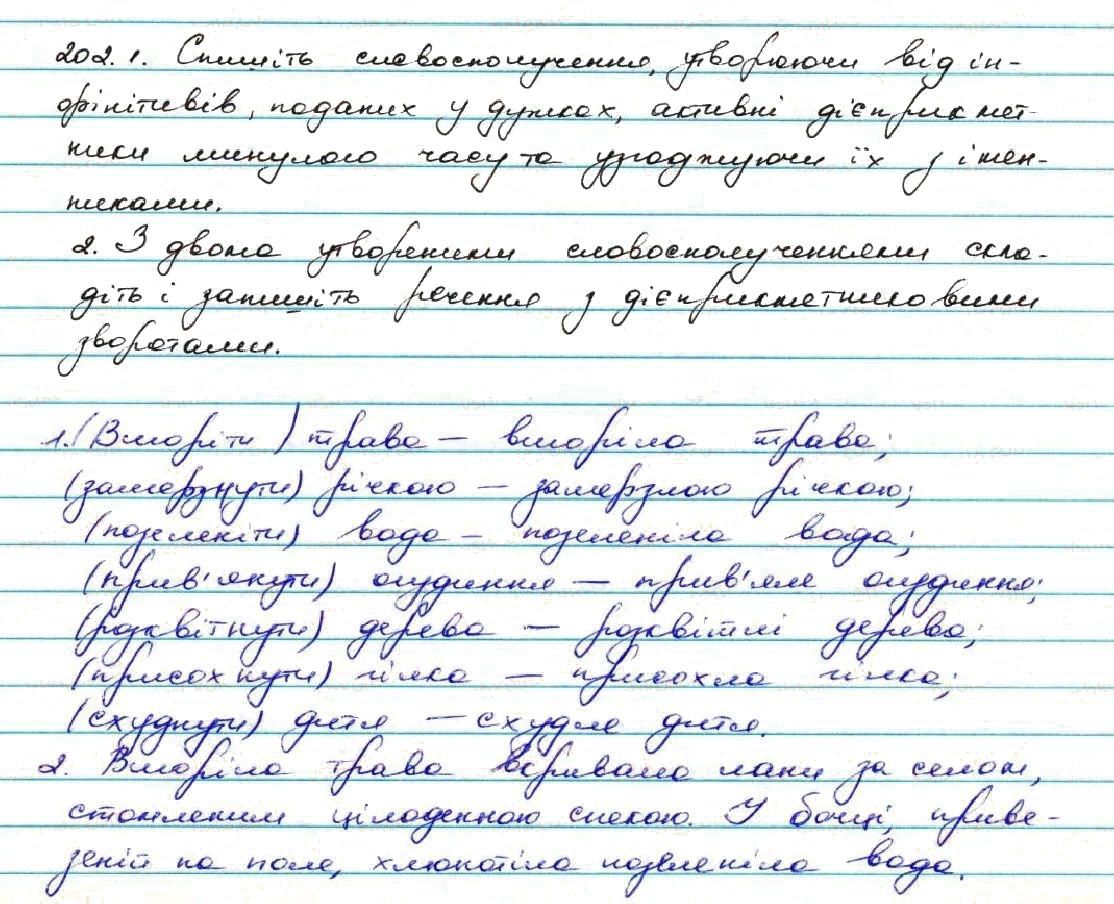 202.1. Спишіть словосполучення, утворюючи від ін-
фінітивів, поданих у дужках, активні дієприкмет-
ники минулого часу та узгоджуючи їх з імен-
никами.
2. З двома утвореними словосполученнями скла-
діть і запишіть речення з дієприкметниковими
зворотами.
1. (Вигоріти) трава – вигоріла трава;
(замерзнути) річкою – замерзлою річкою;
(позеленіти) вода – позеленіла вода;
(прив'янути) огудиння – прив'яле огудиння;
(розквітнути) дерева – розквітлі дерева;
(присохнути) гілка – присохла гілка;
(схуднути) дитя – схудле дитя.
2. Вигоріла трава вкривала лани за селом,
стомленим цілоденною спекою. У бочці, приве-
зеній на поле, хлюпотіла позеленіла вода.